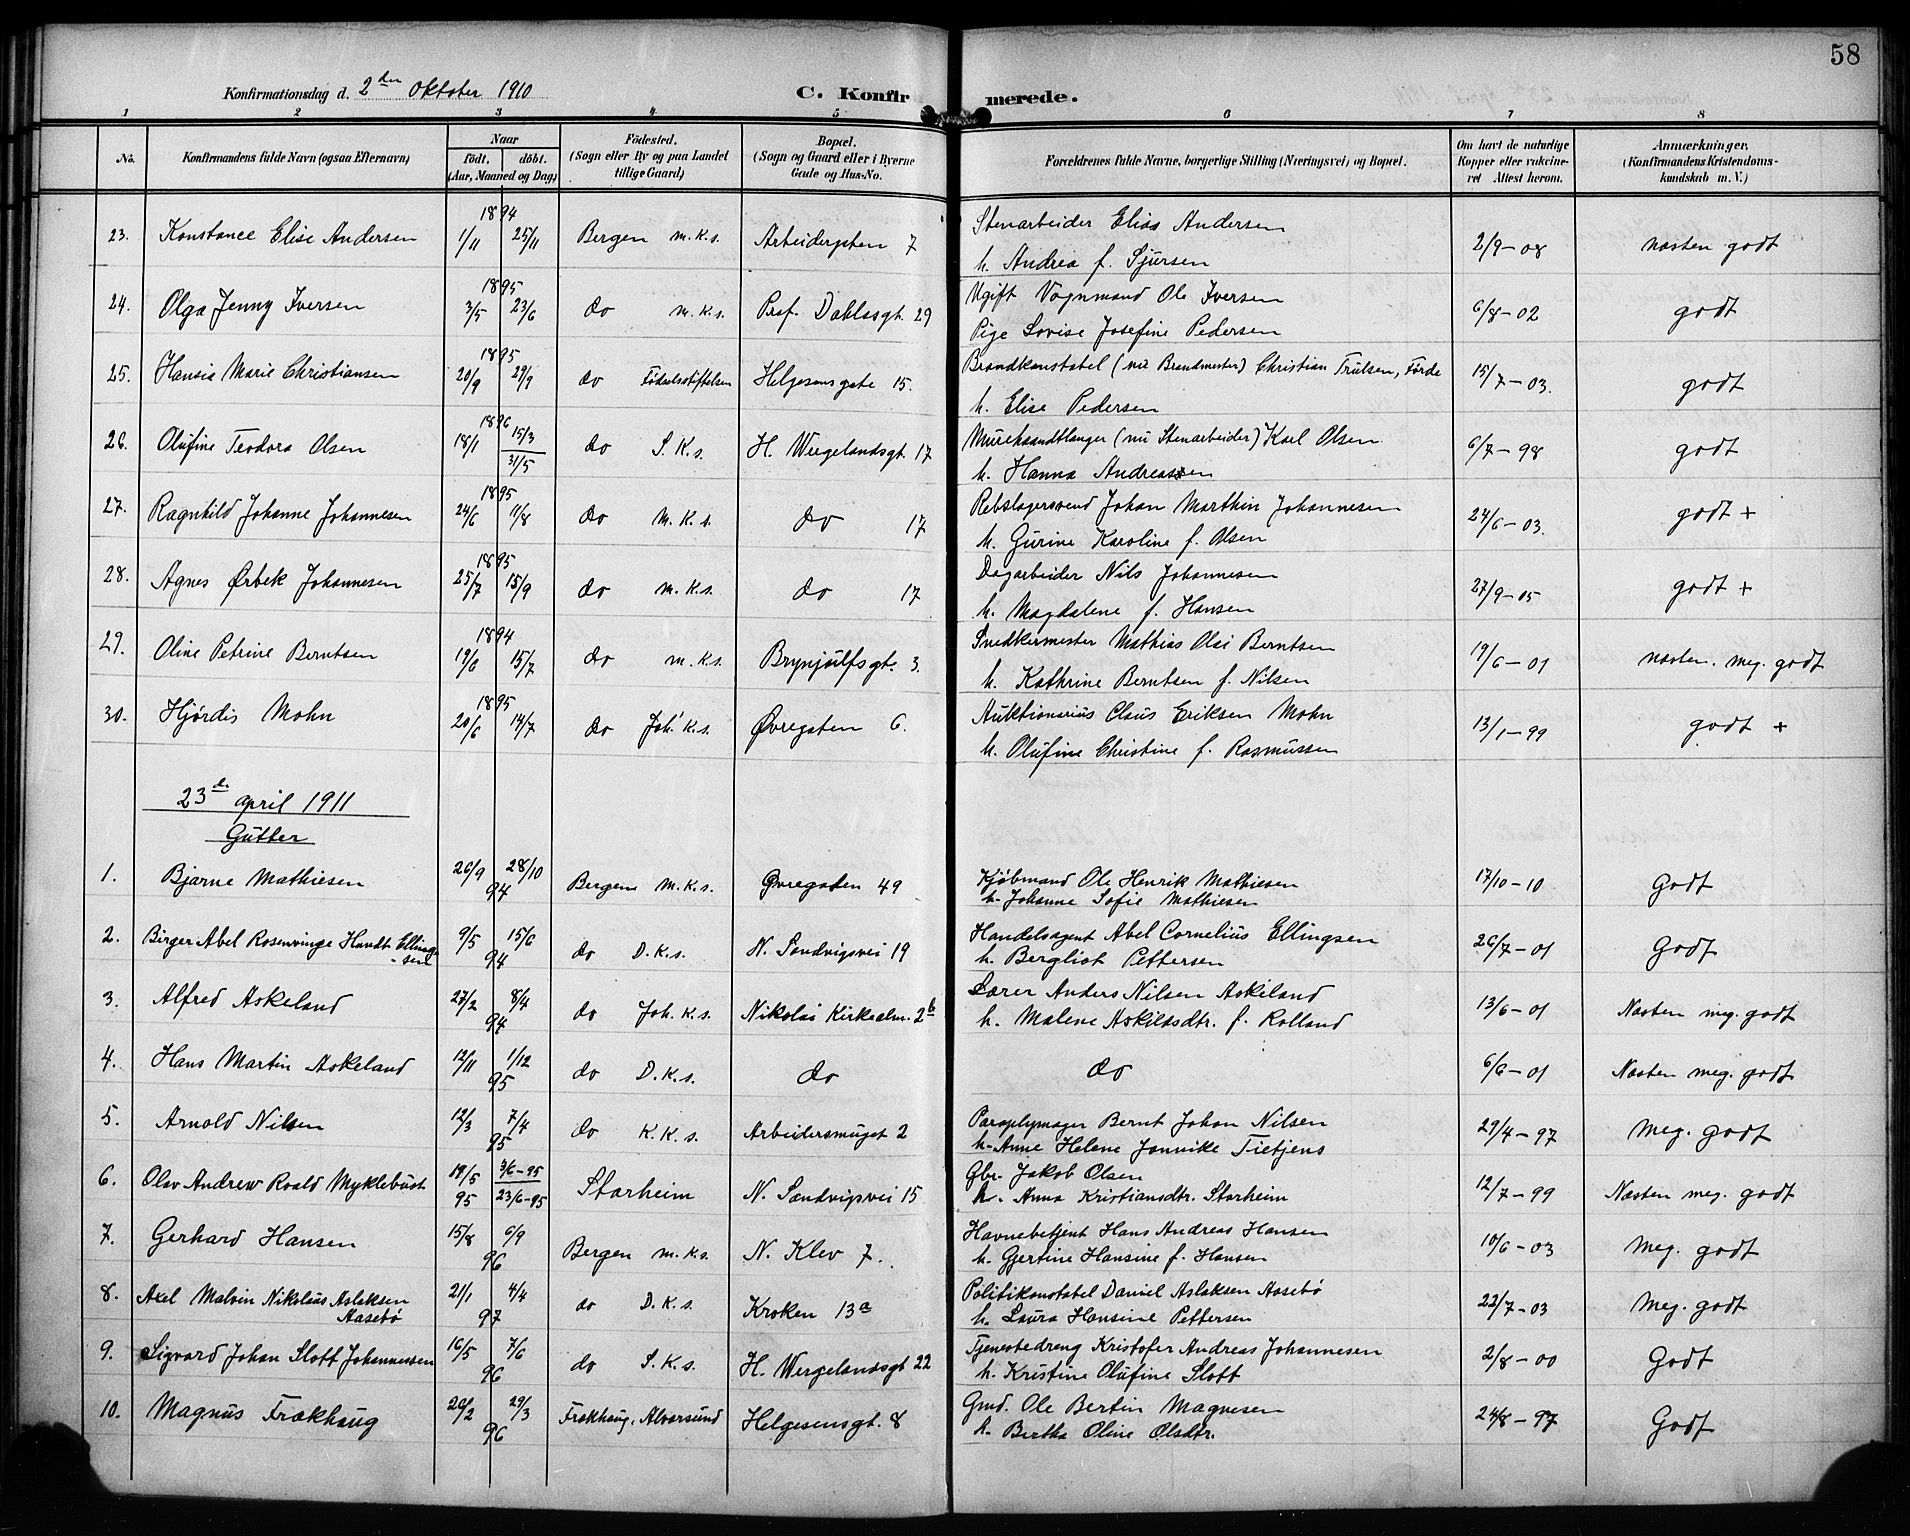 58
Konfirmationsdag d. 2den Oktober 1910
C. Konfirmerede.
1 2 3 4 5 6 7 8
No. Konfirmandens fulde Navn (ogsaa Efternavn) Naar födt. döbt. (Aar, Maaned og Dag) Födested. (Sogn eller By og paa Landet tillige Gaard) Bopæl. (Sogn og Gaard eller i Byerne Gade og Hus-No. Forældrenes fulde Navne, borgerlige Stilling (Næringsvei) og Bopæl. Om havt de naturlige Kopper eller vakcineret Attest herom. Anmærkninger. (Konfirmandens Kristendomskundskab m.V.)
23. Konstance Elise Andersen 1894 1/11 25/11 Bergen m.K.s. Arbeidergten 7 Stenarbeider Elias Andersen 2/9-08 næsten godt
h. Andrea f. Sjursen
24. Olga Jenny Iversen 1895 3/5 23/6 do m.K.s. Prof. Dahlsgt. 29 Ugift Vognmand Ole Iversen 6/8-02 godt
Pige Lovise Josefine Pedersen
25. Hansia Marie Christiansen 1895 20/9 29/9 do Födselsstiftelsen Helgesensgate 15. Brandkonstabel (nu Brandmester) Christian Trulsen, Förde 15/7-03. godt
h. Elise Pedersen
26. Olufine Teodora Olsen 1896 18/1 15/3 31/5 do S.K.s. H. Wergelandsgt. 17 Murehaandtlanger (nu Stenarbeider) Karl Olsen 6/7-98 godt
h. Hanna Andreassen
27. Ragnhild Johanne Johannesen 1895 24/6 11/8 do M.K.s. do 17 Rebslagersvend Johan Marthin Johannesen 24/6-03. godt +
h. Gurine Karoline f. Olsen
28. Agnes Ørbek Johannesen 1895 25/7 15/9 do m.K.s. do 17 Dagarbeider Nils Johannesen 27/9-05 godt +
h. Magdalene f. Hansen
29. Oline Petrine Berntsen 1894 19/6 15/7 do m.K.s. Brynjulfsgt. 3. Snedkermester Mathias Olai Berntsen 19/6-01 næsten. meg. godt
h. Kathrine Berntsen f. Nilsen
30. Hjördis Mohn 1895 20/6 14/7 do Joh. K.s. Øvregaten 6. Auktionarius Claus Eriksen Mohn 13/1-99 godt +
h. Olufine Christine f. Rasmussen
23de april 1911
Gutter
1. Bjarne Mathiesen 26/9 28/10 94 Bergen M.K.s. Øvregaten 49 Kjöbmand Ole Henrik Mathiesen 17/10-10 Godt
h. Johanne Sofie Mathiesen
2. Birger Abel Rosenvinge Hundt Ellingsen 9/5 15/6 94 do D.K.s. N. Sandvigsvei 19 Handelsagent Abel Cornelius Ellingsen 26/7-01 Godt
h. Bergliot Pettersen
3. Alfred Askeland 27/2 8/4 94 do Joh. K.s. Nikolai Kirkealm. 2b Lærer Anders Nilsen Askeland 13/6-01 Næsten meg. godt
h. Malene Askildsdtr. f. Rolland
4. Hans Martin Askeland 12/11 1/12 95 do D.K.s. do do 6/6-01 Næsten meg. godt
5. Arnold Nilsen 12/3 7/4 95 do K.K.s. Arbeidersmuget 2 Paraplymager Bernt Johan Nilsen 29/4-97 Meg. godt
h. Anne Helene Jannike Tietjens
6. Olav Andrew Roald Myklebust 19/5 95 3/6-95 23/6-95 Starheim N. Sandvigsvei 15 Gbr. Jakob Olsen 12/7-99 Næsten meg. godt
h. Anna Kristiansdtr. Starheim
7. Gerhard Hansen 15/8 6/9 96 Bergen m.K.s. N. Klev 7. Havnebetjent Hans Andreas Hansen 10/6-03 Meg. godt
h. Gjertine Hansine f. Hansen
8. Axel Malvin Nikolaus Aslaksen Aasebö 21/1 4/4 97 do D.K.s. Kroken 13a Politikonstabel Daniel Aslaksen Aasebö 22/7-03 Meg. godt
h. Laura Hansine Pettersen
9. Sigvard Johan Slott Johannessen 16/5 7/6 96 do S.K.s. H. Wergelandsgt 22 Tjenestedreng Kristofer Andreas Johannesen 2/8-00 Godt
h. Kristine Olufine Slott
10. Magnus Frækhaug 20/2 29/3 96 Frækhaug, Alversund Helgesensgt. 8 Gmd. Ole Bertin Magnesen 24/8-97 Godt
h. Bertha Oline Olsdtr.